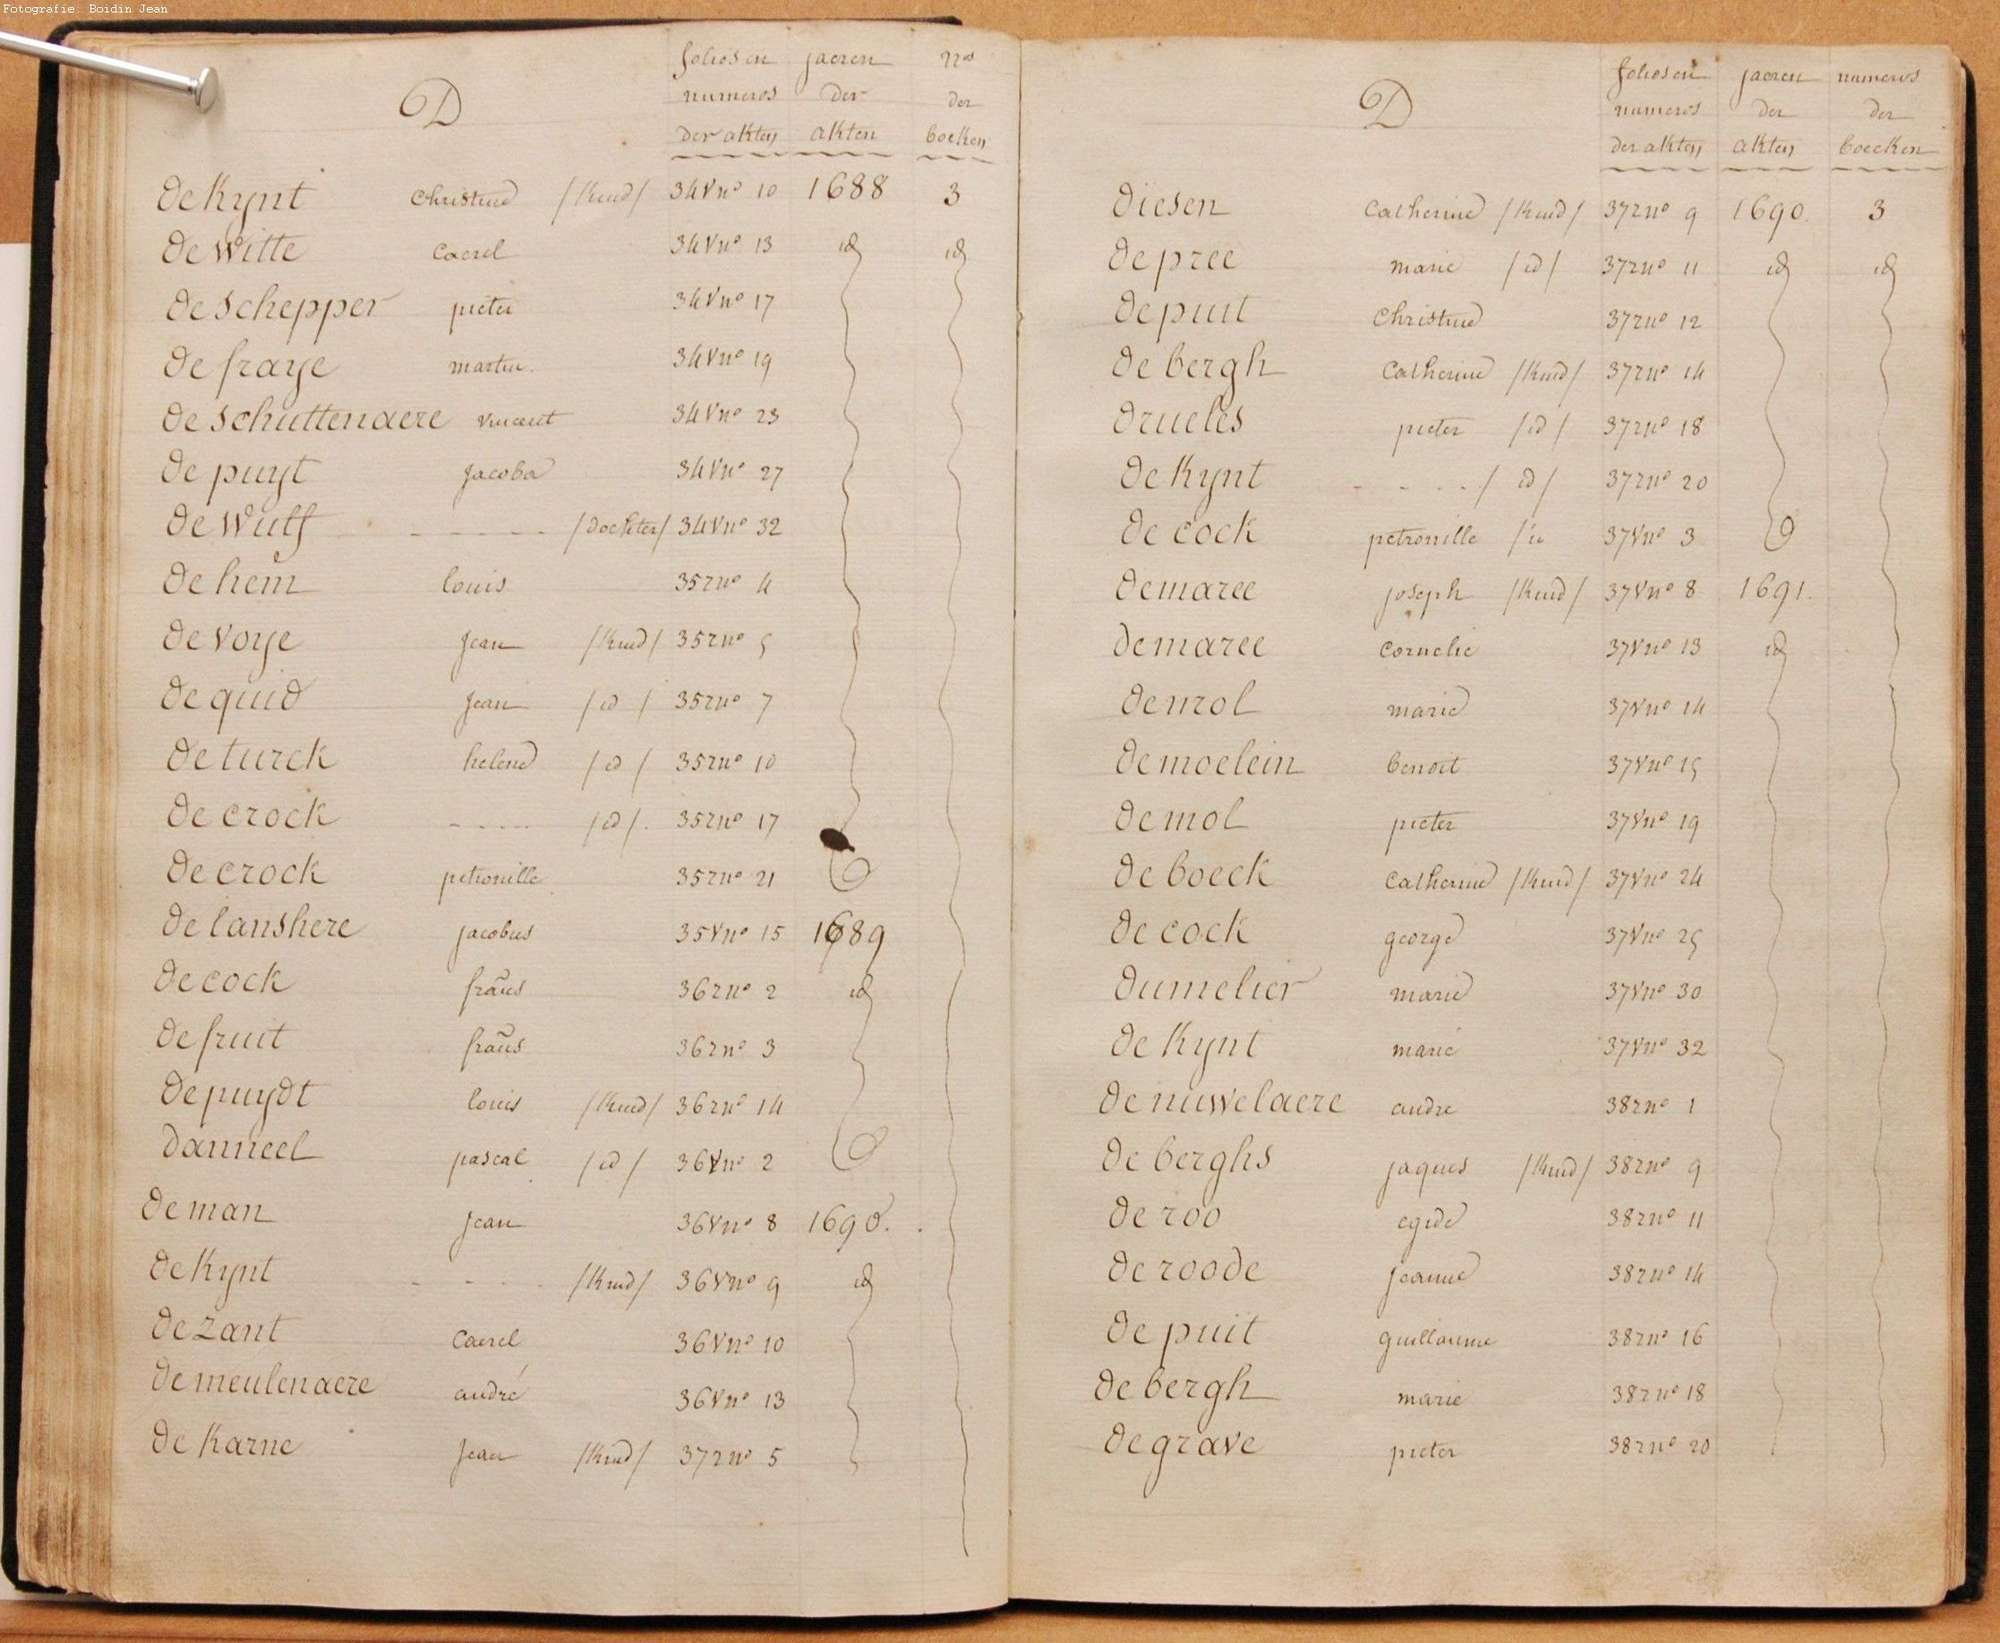 Fotografie: Boidin Jean
D folios en jaeren nos
numeros der der
der akten akten boeken
de Kynt Christine /Kind/ 34 V no 10 1688 3
de witte Caerel 34 V no 13 id id
de schepper pieter 34 V no 17
de fraye martin. 34 V no 19
de schuttenaere vincent 34 V no 23
de puyt Jacoba 34 V no 27
de wulf - - - - - /dochter/ 34 V no 32
de hem louis 35 r no 4
de voye Jean /Kind/ 35 r no 5
de quid Jean /id/ 35 r no 7
de turck helene /id/ 35 r no 10
de crock - - - - /id/. 35 r no 17
de crock petronille 35 r no 21
de lanshere jacobus 35 V no 15 1689
de cock frans 36 r no 2 id
de fruit frans 36 r no 3
de puydt louis /Kind/ 36 r no 14
danneel pascal /id/ 36 V no 2
de man Jean 36 V no 8 1690.
de Kynt - - - - /Kind/ 36 V no 9 id
de zant Caerel 36 V no 10
de meulenaere andré 36 V no 13
de Karne Jean /Kind/ 37 r no 5
D folios en jaeren numeros
numeros der der
der akten akten boecken
diesen Catherine /Kind/ 37 r no 9 1690. 3
de pree marie /id/ 37 r no 11 id id
de puit Christine 37 r no 12
de bergh Catherine /Kind/ 37 r no 14
drueles pieter /id/ 37 r no 18
de Kynt - - - - /id/ 37 r no 20
de cock petronille 37 V no 3
demaree joseph /Kind/ 37 V no 8 1691.
demaree cornelie 37 V no 13 id
de mol marie 37 V no 14
de moelein benoit 37 V no 15
de mol pieter 37 V no 19
de boeck Catherine /Kind/ 37 V no 24
de cock george 37 V no 25
dumelier marie 37 V no 30
de Kynt marie 37 V no 32
de nuwelaere andre 38 r no 1
de berghs jaques /Kind/ 38 r no 9
de roo egide 38 r no 11
de roode jeanne 38 r no 14
de puit guillaume 38 r no 16
de bergh marie 38 r no 18
de grave pieter 38 r no 20